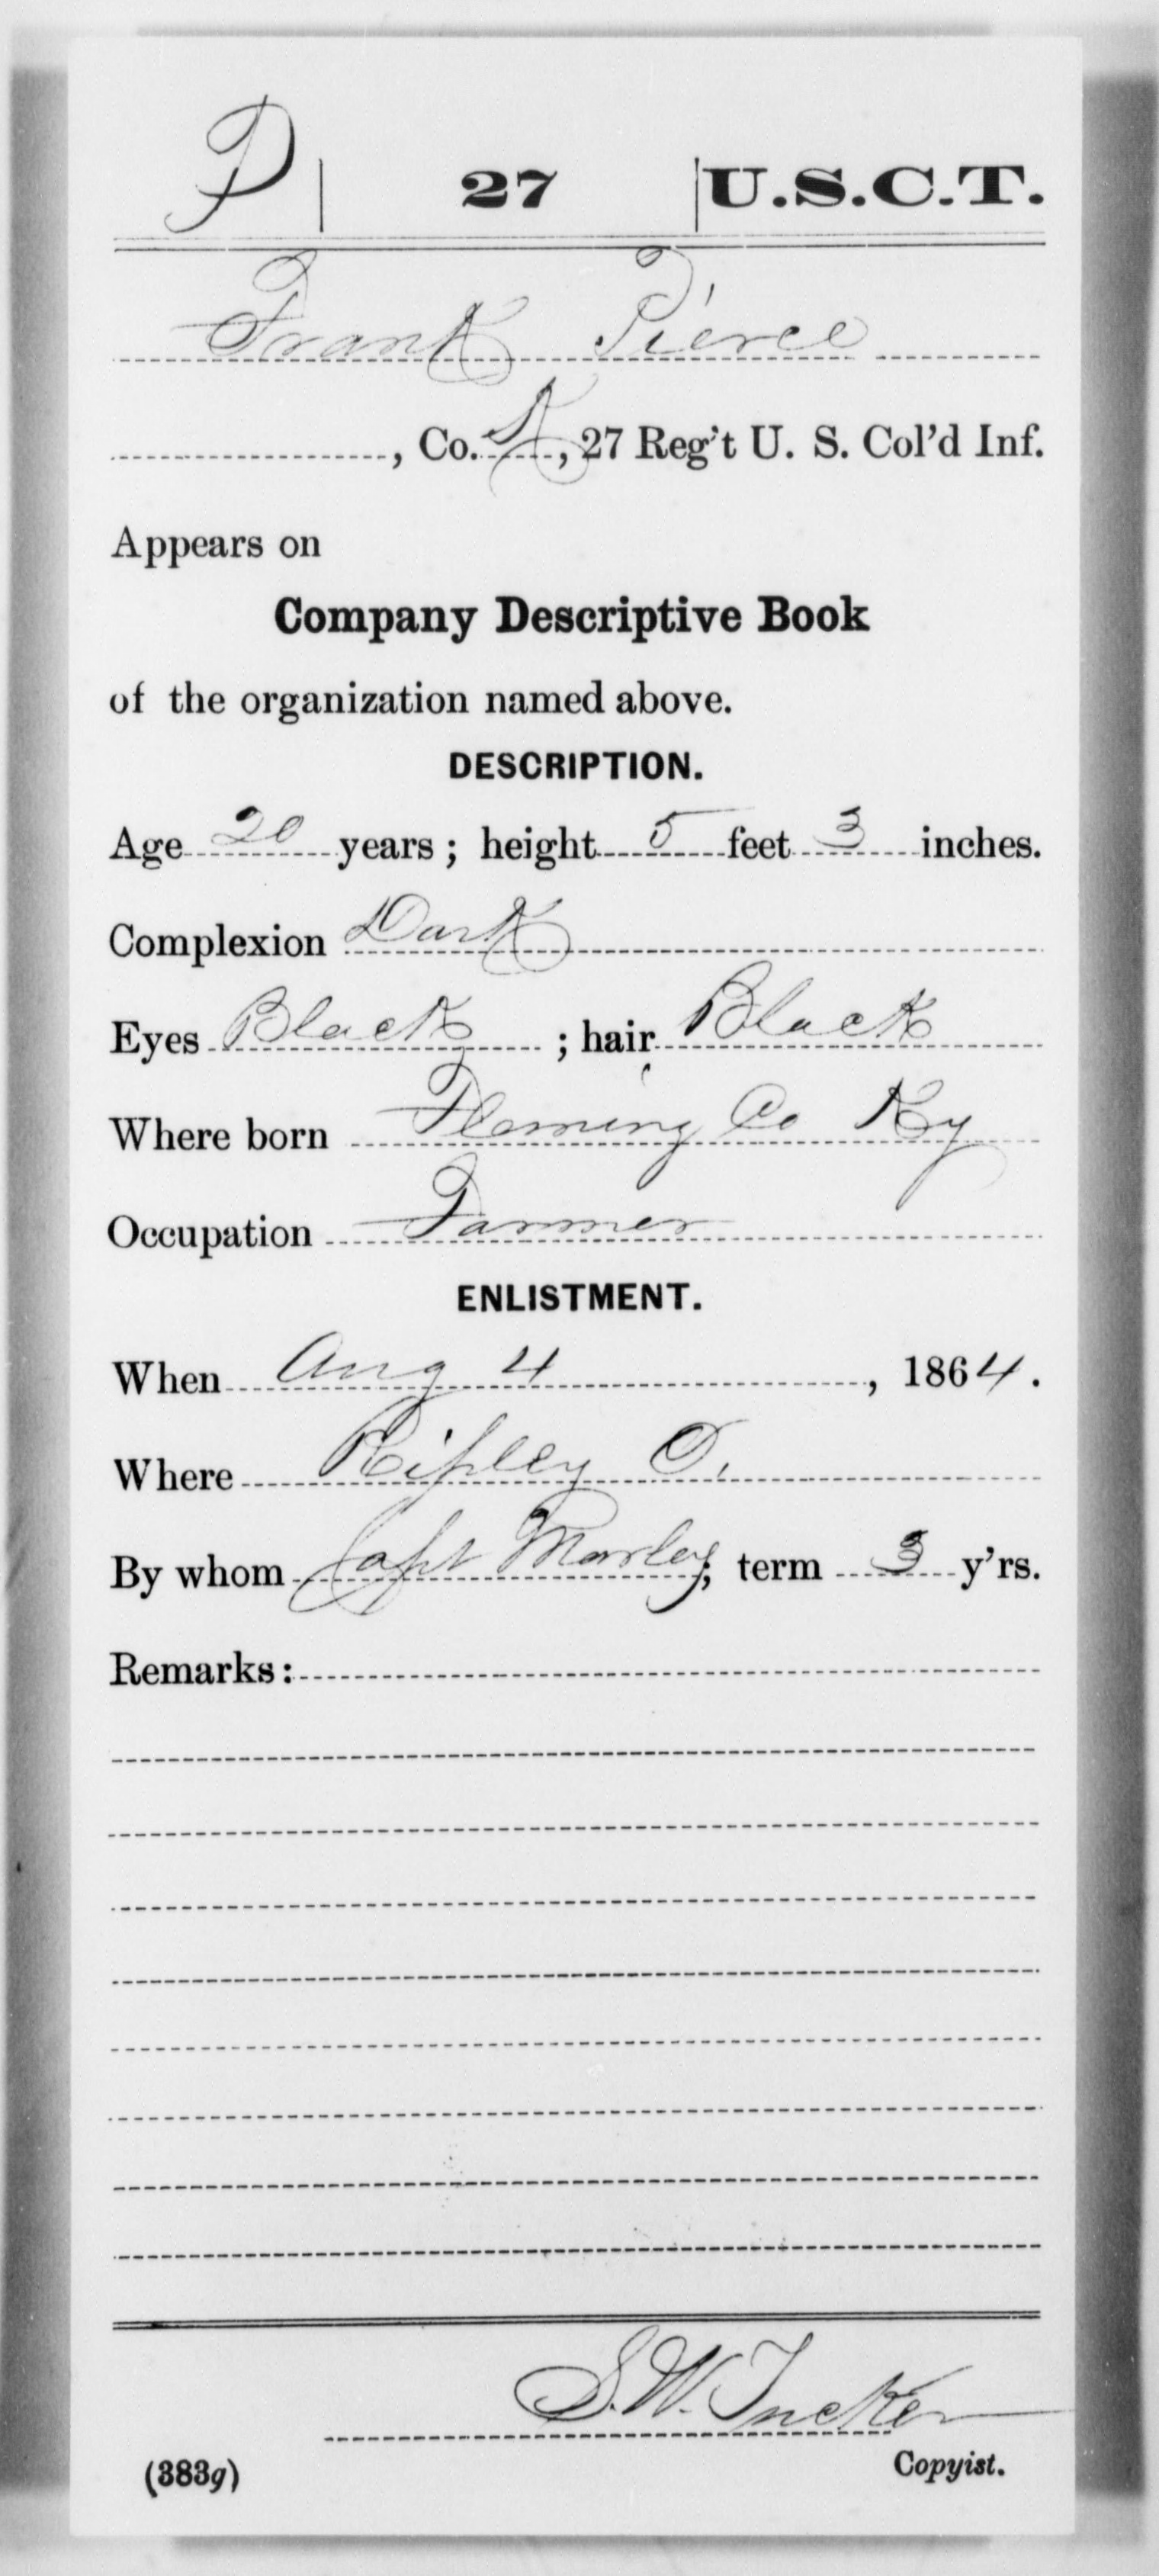 P | 27 | U.S.C.T.
Frank Pierce
, Co. K, 27 Reg't U. S. Col'd Inf.
Appears on
Company Descriptive Book
of the organization named above.
DESCRIPTION.
Age 20 years; height 5 feet 3 inches.
Complexion Dark
Eyes Black ; hair Black
Where born Fleming Co Ky
Occupation Farmer
ENLISTMENT.
When Aug 4, 1864.
Where Ripley O.
By whom Capt Marley; term 3 y'rs.
Remarks:
S. W. Tucker
(383g) Copyist.